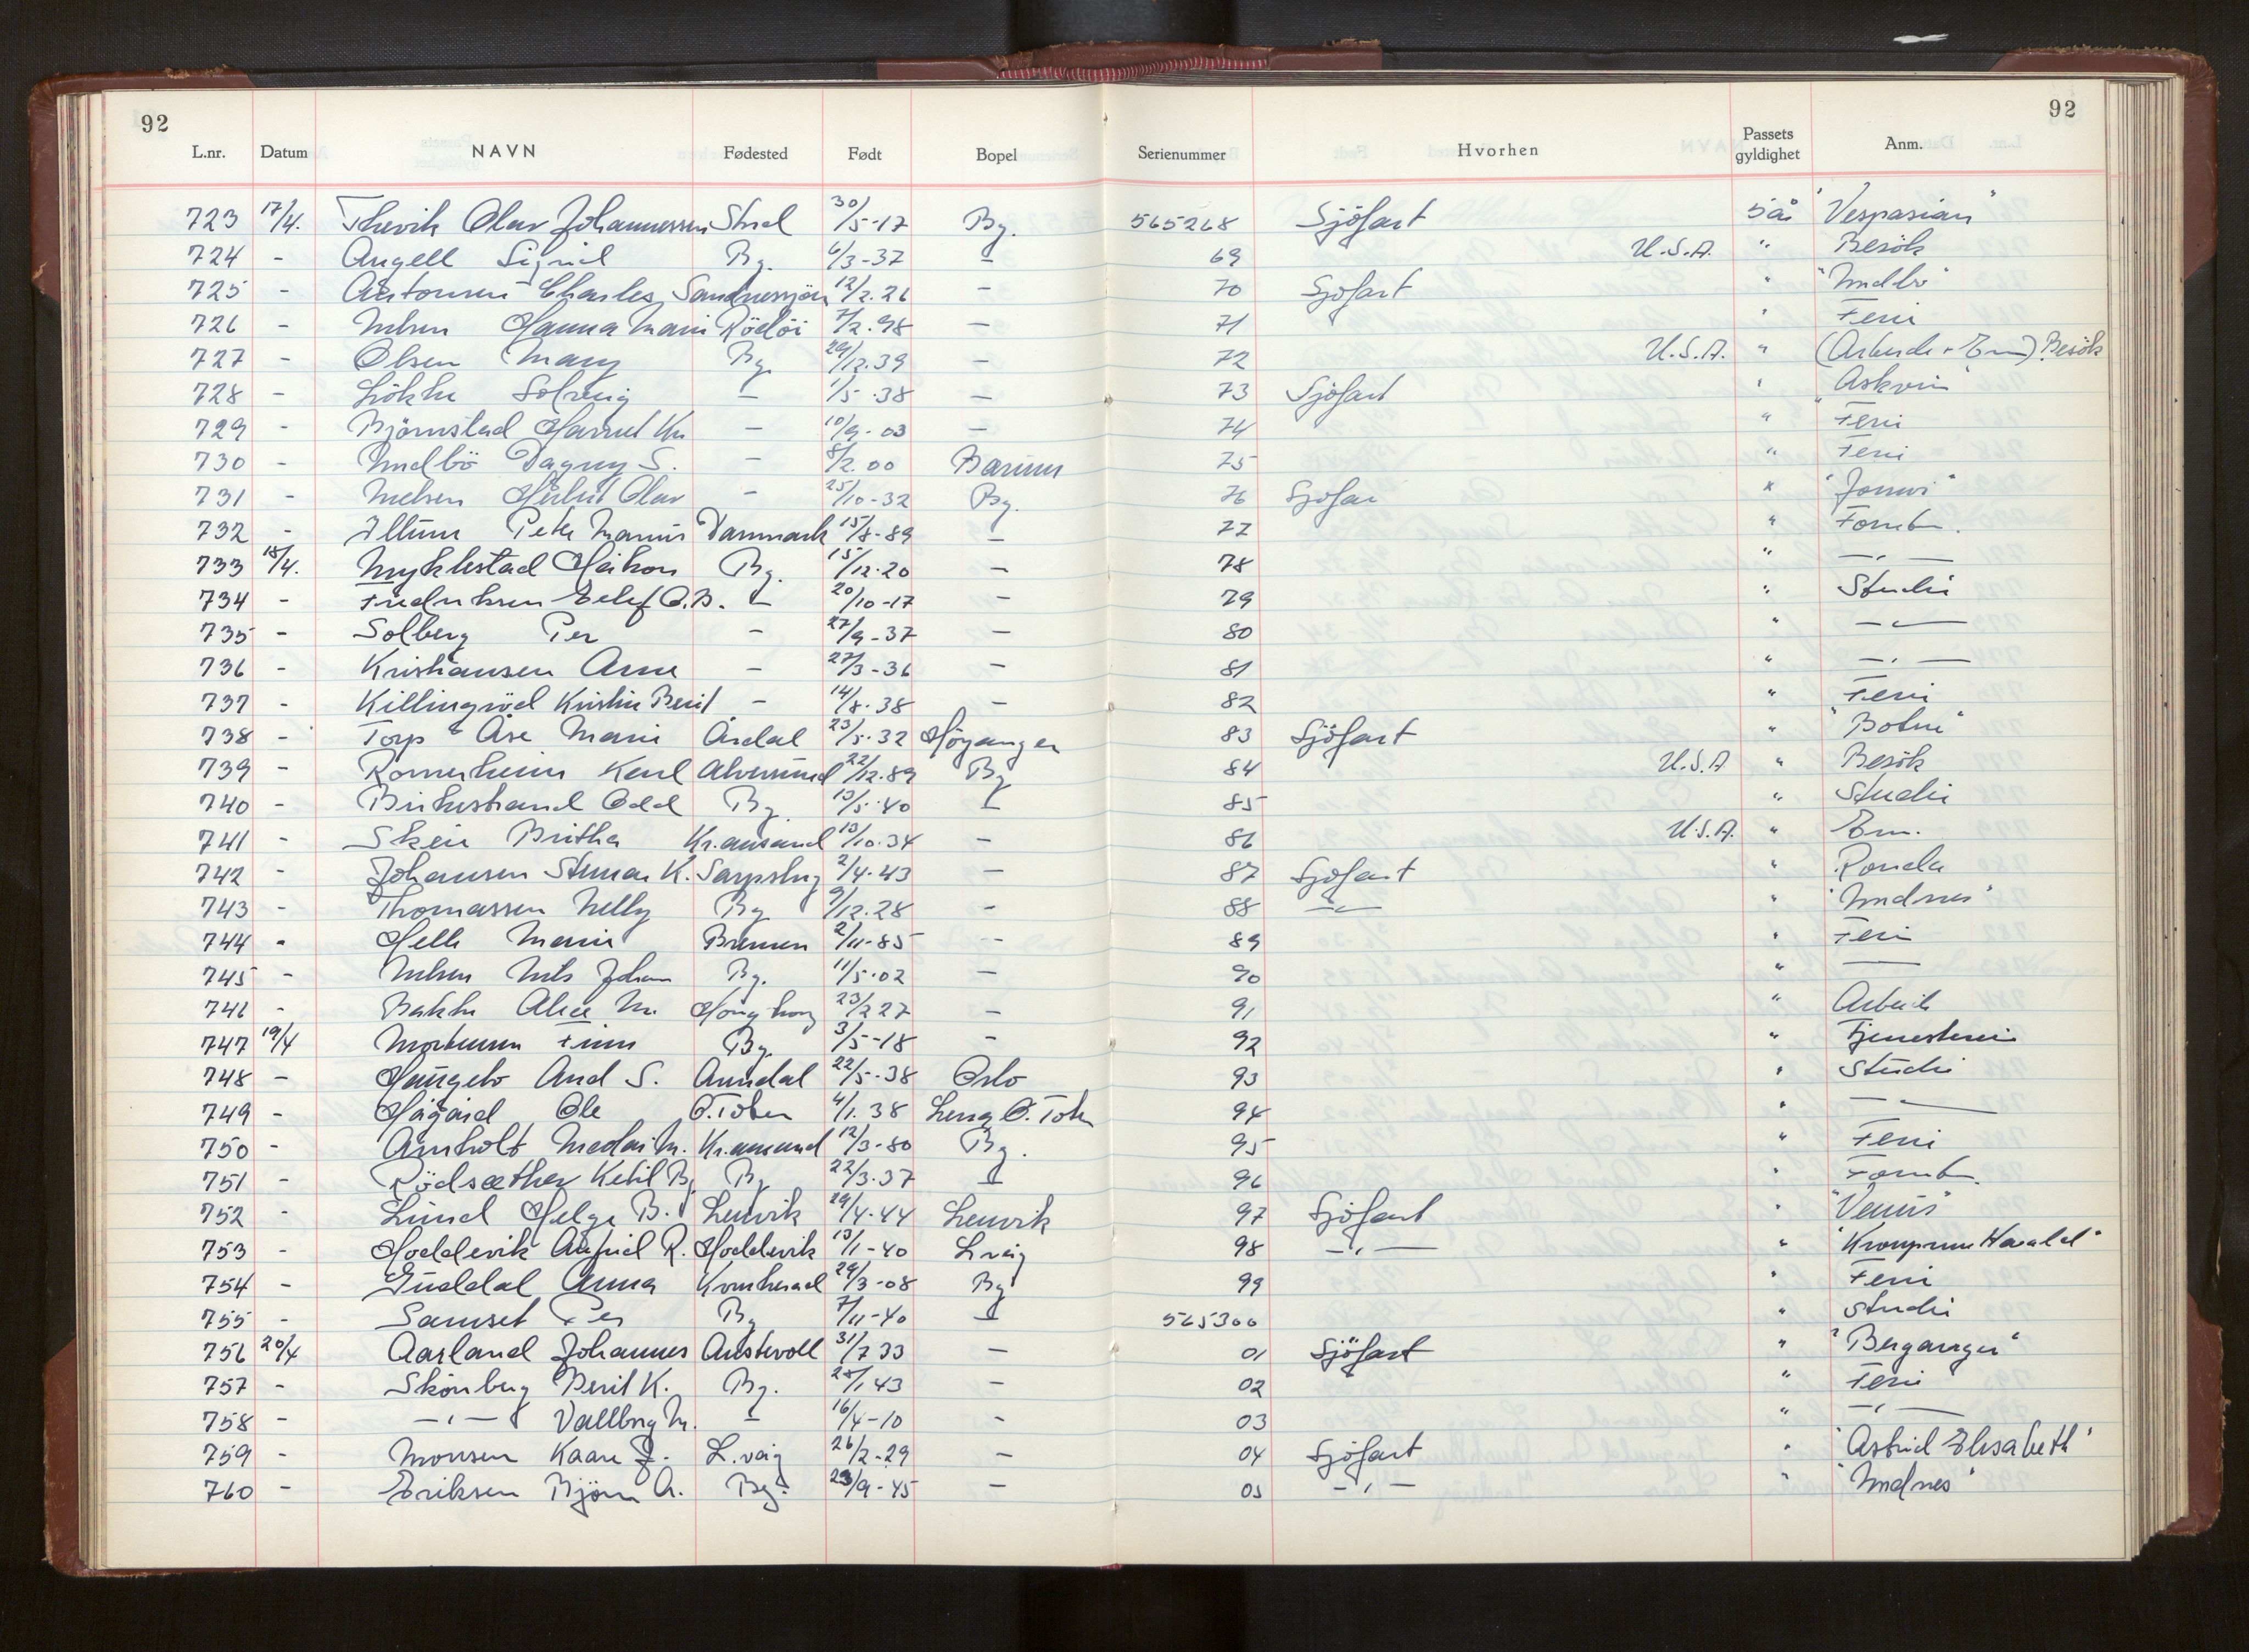 92
92
L.nr. Datum NAVN Fødested Født Bopel Serienummer Hvorhen Passets gyldighet Anm.
723 17/4. Olav Johannessen 30/5-17 Bg. 565268 Sjöfart 5 år "Vespasian"
724 - Angell Sigrid Bg. 6/3-37 - 69 U.S.A. " Besök
725 - Antonsen Charles Sandnessjöen 12/2.26 - 70 Sjöfart " "Indbo"
726 - Nilsen Hanna Marie Rödöi 7/2.98 - 71 " Ferie
727 - Olsen Mary Bg. 29/12.39 - 72 U.S.A. " Besök
728 - Lökke Solveig - 1/5.38 - 73 Sjöfart " "Askvin"
729 - Björnstad Harriet - 10/9-03 - 74 " Ferie
730 - Dagny S. - 8/2.00 Bærum 75 " Ferie
731 - Nielsen Olav - 25/10-32 Bg. 76 Sjöfar "
732 - Illum Peter Marius Danmark 15/8-89 - 77 "
733 18/4. Myklestad Håkon Bg. 15/12.20 - 78 " -"-
734 - Fredriksen Eilef O.B. - 20/10-17 - 79 " Studie
735 - Solberg Per - 27/9-37 - 80 " -"-
736 - Kristiansen Arne - 27/3-36 - 81 " -"-
737 - Killingrød Kristin Berit - 14/8.38 - 82 " Ferie
738 - Torp Åse Marie Årdal 23/5.32 Höyanger 83 Sjöfart " "Botne"
739 - Alversund 22/12.89 Bg 84 U.S.A " Besök
740 - Birkestrand Odd Bg. 13/5.40 - 85 " Studie
741 - Skeie Britha Kr.ansand 13/10.34 - 86 U.S.A. " Em.
742 - Johansen Steinar K. Sarpsbrg 2/4.43 - 87 Sjöfart " Ronda
743 - Thomassen Nelly Bg 9/12.28 - 88 -"- " "Indnes"
744 - Helle Marie Bremen 2/11-85 - 89 " Ferie
745 - Nilsen Nils Johan Bg. 11/5.02 - 90 " —
746 - Bakke Alice M. Hong Kong 23/2 27 - 91 " Arbeide
747 19/4 Mortensen Finn Bg. 3/5-18 - 92 " Tjenestereise
748 - And S. Arendal 22/5.38 Oslo 93 " Studie
749 - Hågård Ole Ö.Toten 4/1.38 Lena Ö.Toten 94 " -"-
750 - Arnholt M. Kr.ansund 12/3-80 Bg. 95 " Ferie
751 - Rödsæther Ketil B. Bg 22/3.37 - 96 "
752 - Lund Helge B. Lenvik 29/4.44 Lenvik 97 Sjöfart " "Venus"
753 - Hoddevik R. Hoddevik 13/1-40 L.våg 98 -"- " "Kronprins Harald"
754 - Guddal Anna Kvinherad 29/3-08 Bg 99 " Ferie
755 - Samset Per Bg 7/11-40 - 565300 " Studie
756 20/4 Aarland Johannes Austevoll 31/7 33 - 01 Sjöfart " "Berganger"
757 - Skönberg Berit K. Bg. 25/1 43 - 02 " Ferie
758 - -"- Vallborg M. - 16/4-10 - 03 " -"-
759 - Monsen Kaare J. L.våg 26/2-29 - 04 Sjöfart " "Astrid Elisabeth"
760 - Eriksen Björn A. Bg. 23/9-45 - 05 -"- " "Indnes"